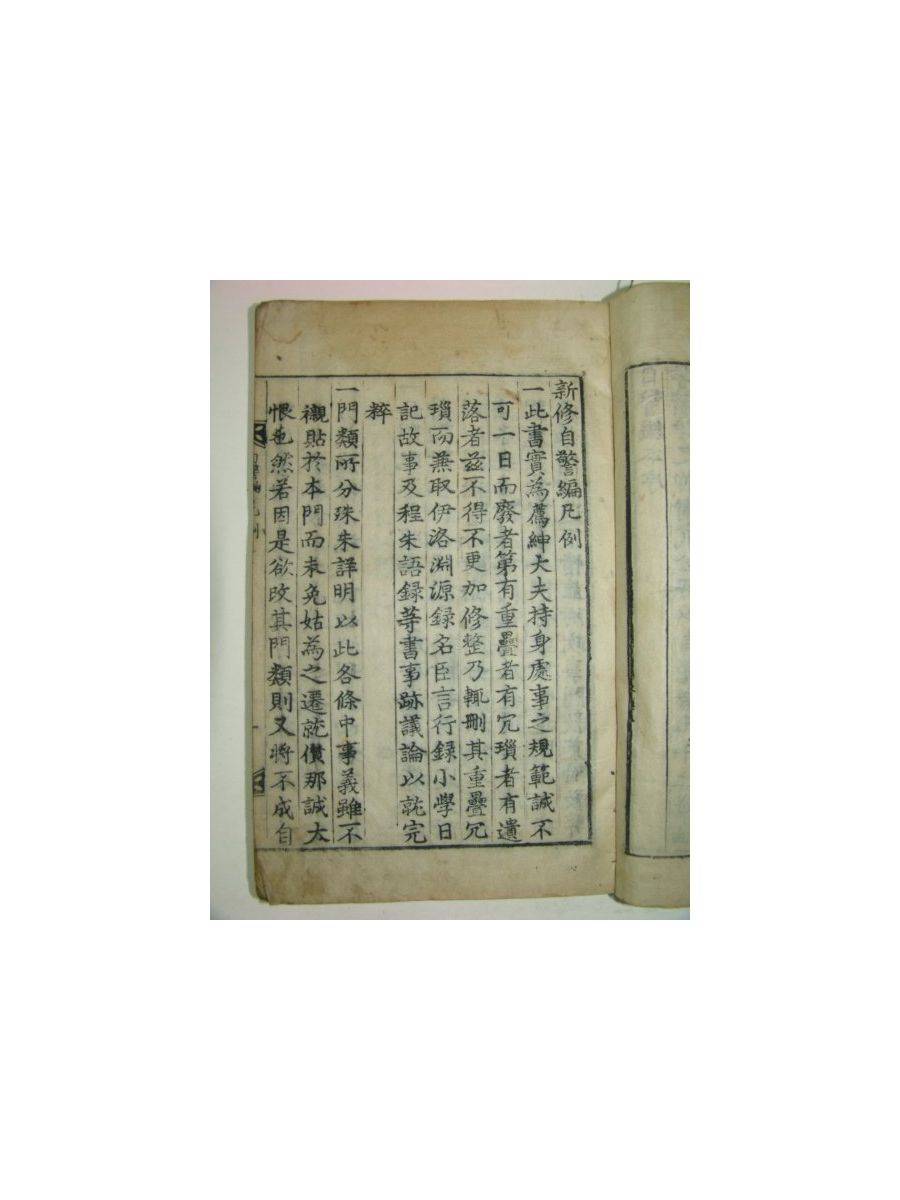 新修自警編凡例
一此書實為薦紳大夫持身處事之規範誠不
可一日而廢者第有重疊者有冗瑣者有遺
落者玆不得不更加修整乃輒刪其重疊冗
瑣而兼取伊洛淵源録名臣言行録小學日
記故事及程朱語録等書事跡議論以就完
粹
一門類所分殊未詳明以此各條中事義雖不
襯貼於本門而未免姑為之遷就儧那誠大
恨也然若因是欲改其門類則又將不成自